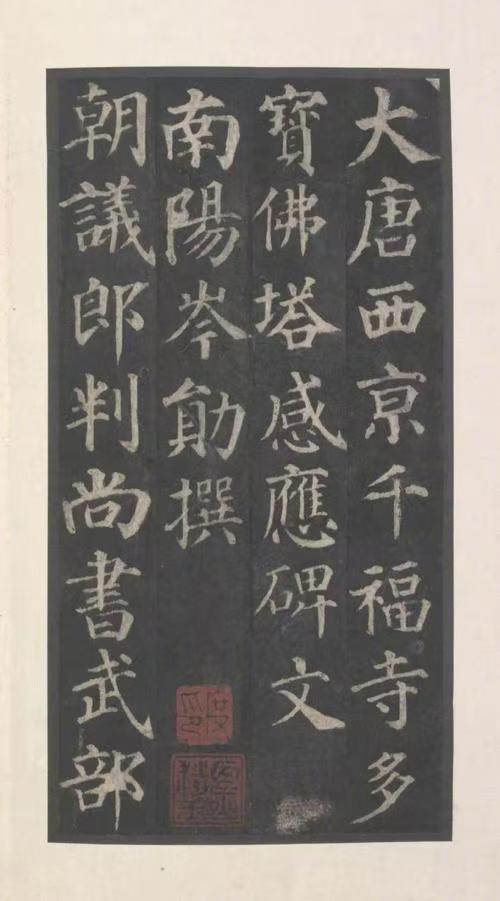 大唐西京千福寺多
寶佛塔感應碑文
南陽岑勛撰
朝議郎判尚書武部